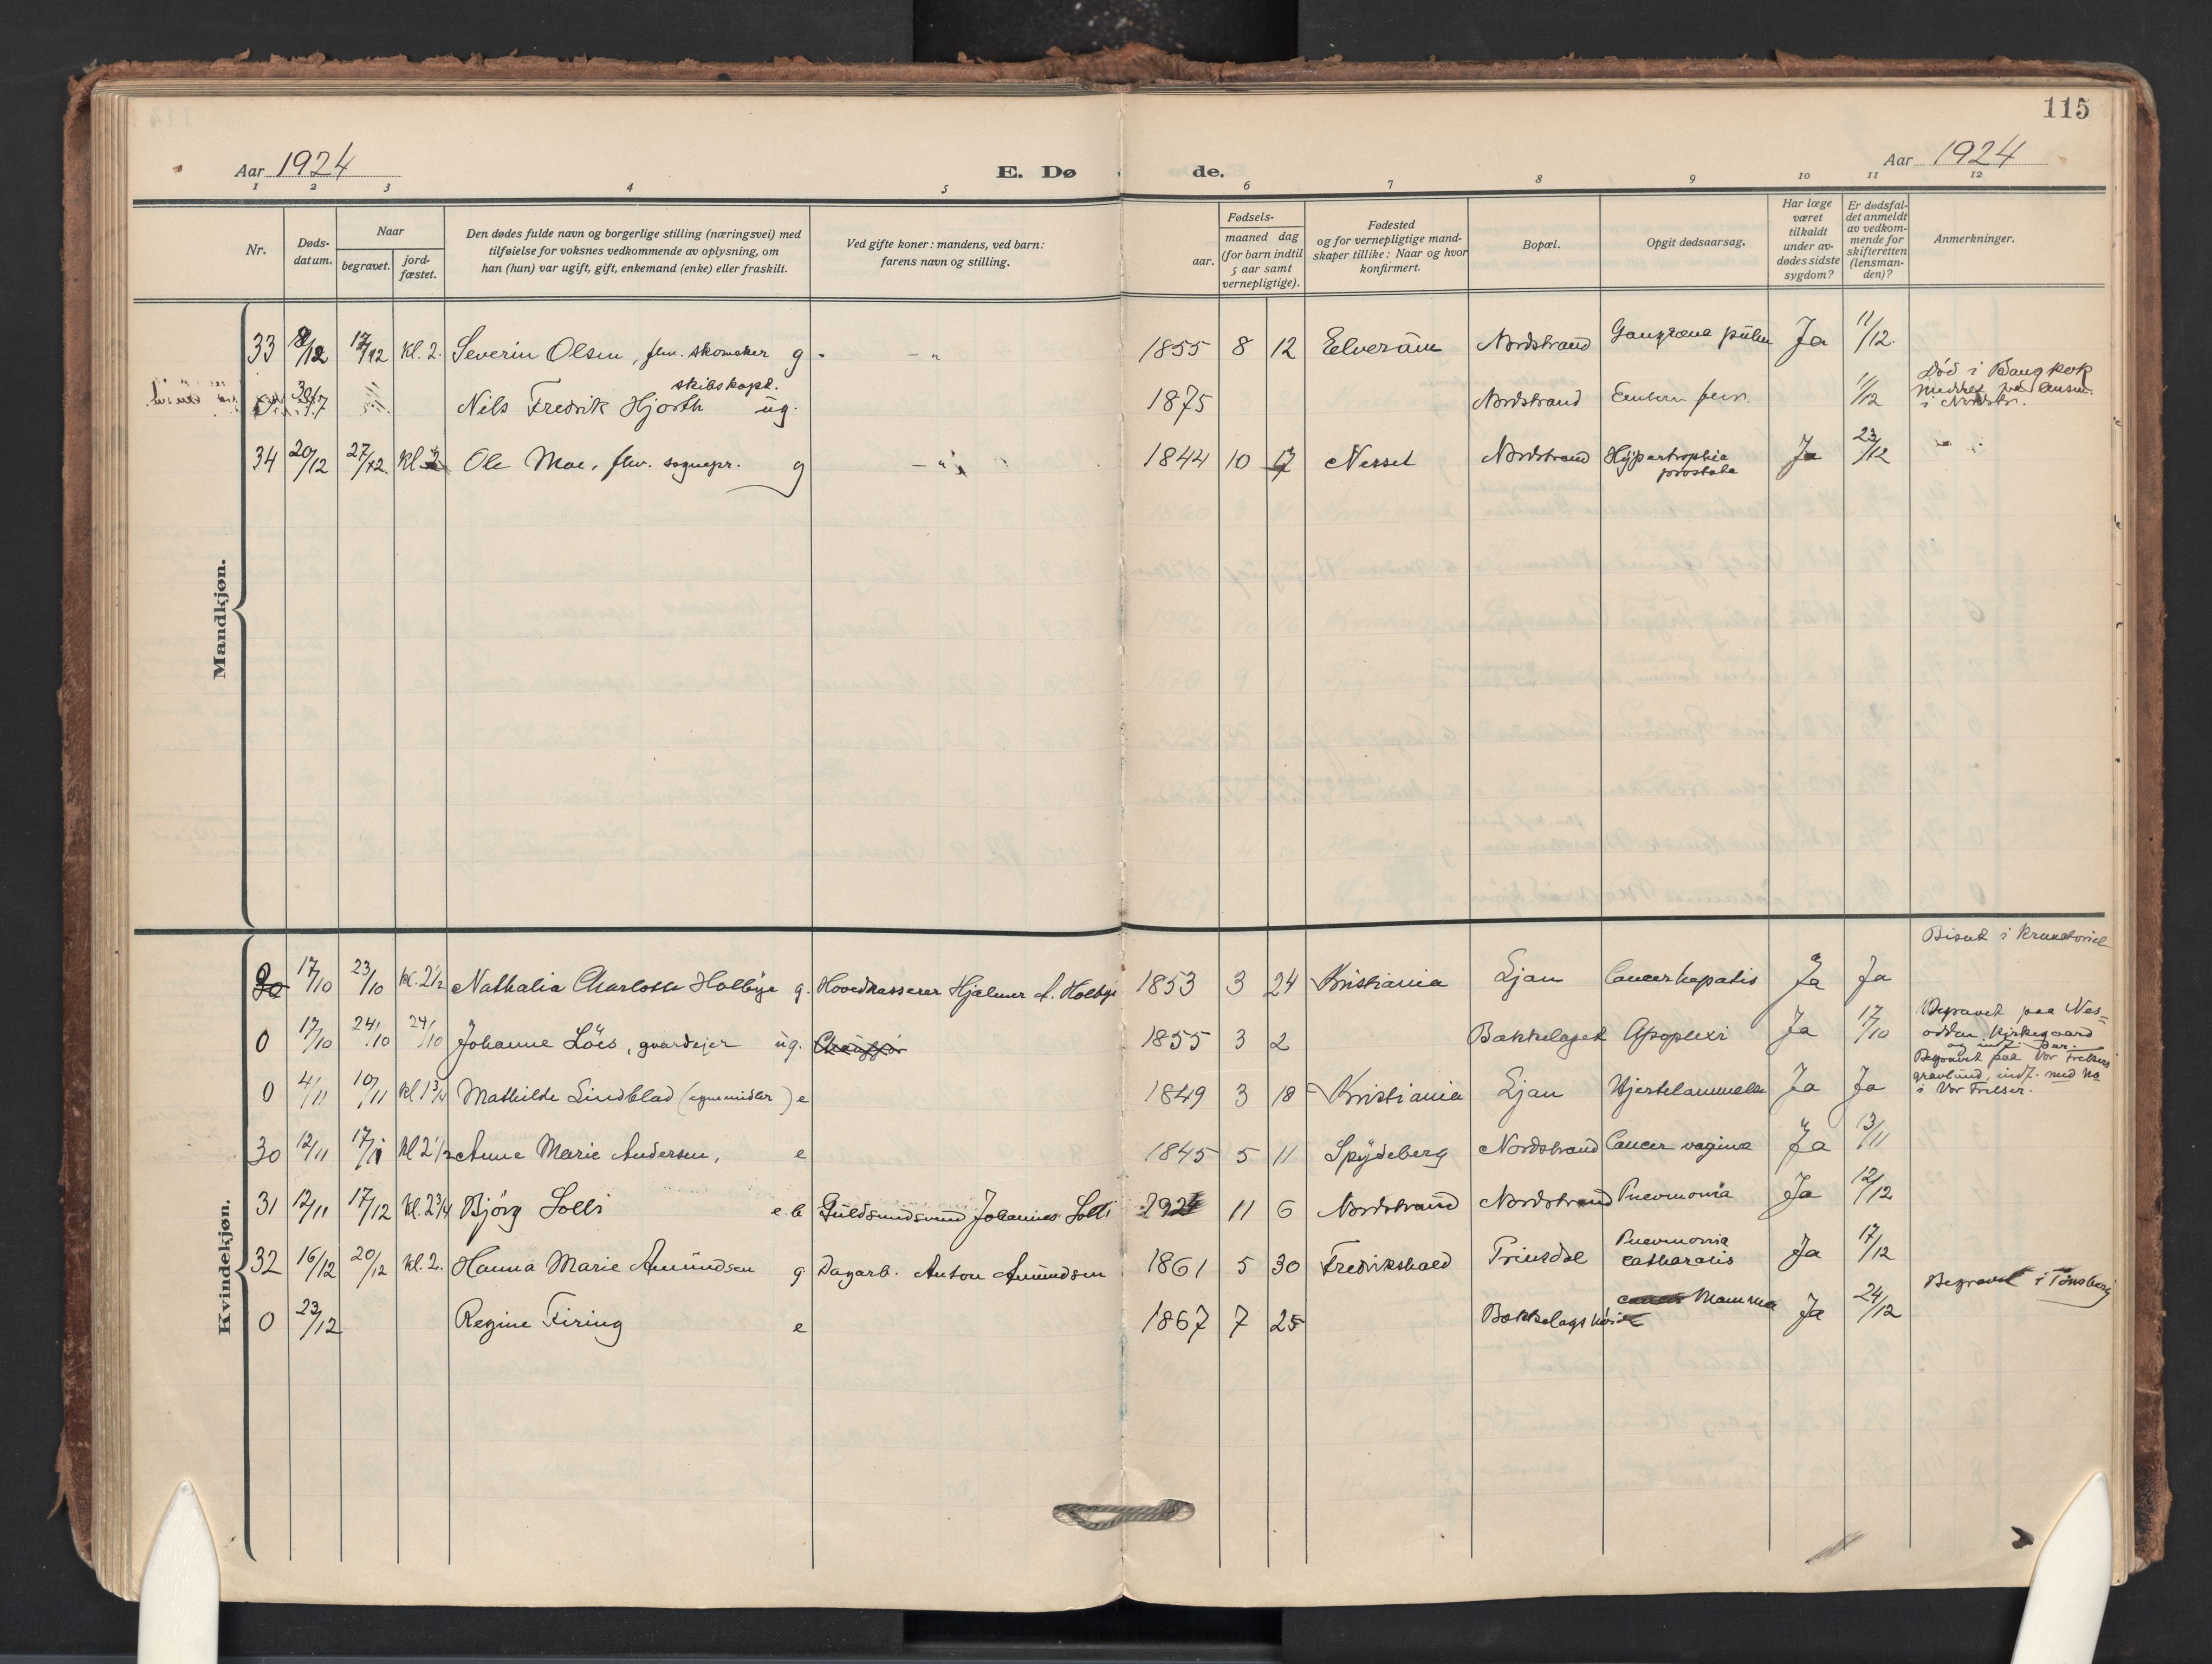 115
Aar 1924 E. Dø de. Aar 1924
1 2 3 4 5 6 7 8 9 10 11 12
Nr. Døds-datum. Naar begravet. jord-fæstet. Den dødes fulde navn og borgerlige stilling (næringsvei) med tilføielse for voksnes vedkommende av oplysning, om han (hun) var ugift, gift, enkemand (enke) eller fraskilt. Ved gifte koner: mandens, ved barn: farens navn og stilling. Fødsels- aar. maaned dag (for barn indtil 5 aar samt vernepligtige). Fødested og for vernepligtige mand-skaper tillike: Naar og hvor konfirmert. Bopæl. Opgit dødsaarsag. Har læge været tilkaldt under av-dødes sidste sygdom? Er dødsfal-det anmeldt av vedkom-mende for skifteretten (lensman-den)? Anmerkninger.
Mandkjøn.
33 8/12 17/12 kl. 2. Severin Olsen, fhv. skomaker g. - " 1855 8 12 Elverum Nordstrand Gangræna pulm Ja 11/12.
30/7 Nils Fredrik Hjorth skibskapt. ug. 1875 Nordstrand 11/12 Død i Bangkok
34 20/12 27/12. kl 2 Ole Moe, fhv. sognepr. g - " 1844 10 17 Nesset Nordstrand Hypertrophia prostata Ja 23/12
Kvindekjøn.
17/10 23/10 kl. 2 1/2 Nathalia Charlotte Holbye g. Hovedkasserer Hjalmar A. Holbye 1853 3 24 Kristiania Ljan Cancer hepatis Ja Ja Bisat i Krematoriet
0 17/10 24/10 24/10 Johanne Löes, gaardejer ug. Chauffør 1855 3 2 Bækkelaget Apoplexi Ja 17/10 Begravet paa Nes=odden Kirkegaard
0 4/11 10/11 kl 1 3/4 Mathilde Lindblad (egne midler) e 1849 3 18 Kristiania Ljan Hjertelammelse Ja Ja Begravet paa Vor Frelsers gravlund, indf. med No i Vor Frelser.
30 12/11 17/11 kl 2 1/2 Anne Marie Andersen, e 1845 5 11 Spydeberg Nordstrand Cancer vagina Ja 13/11
31 12/11 17/12 kl. 2 3/4 Bjørg Solli e.b Guldsmedsvend Johannes Solli 1924 11 6 Nordstrand Nordstrand Pneumonia Ja 12/12
32 16/12 20/12 kl. 2. Hanna Marie Amundsen g Dagarb. Anton Amundsen 1861 5 30 Fredrikshald Prinsdal Pneumonia catharalis Ja 17/12
0 23/12 Regine Firing e 1867 7 25 Bækkelagshøi cancer Mamma Ja 24/12 Begravet i Tønsberg